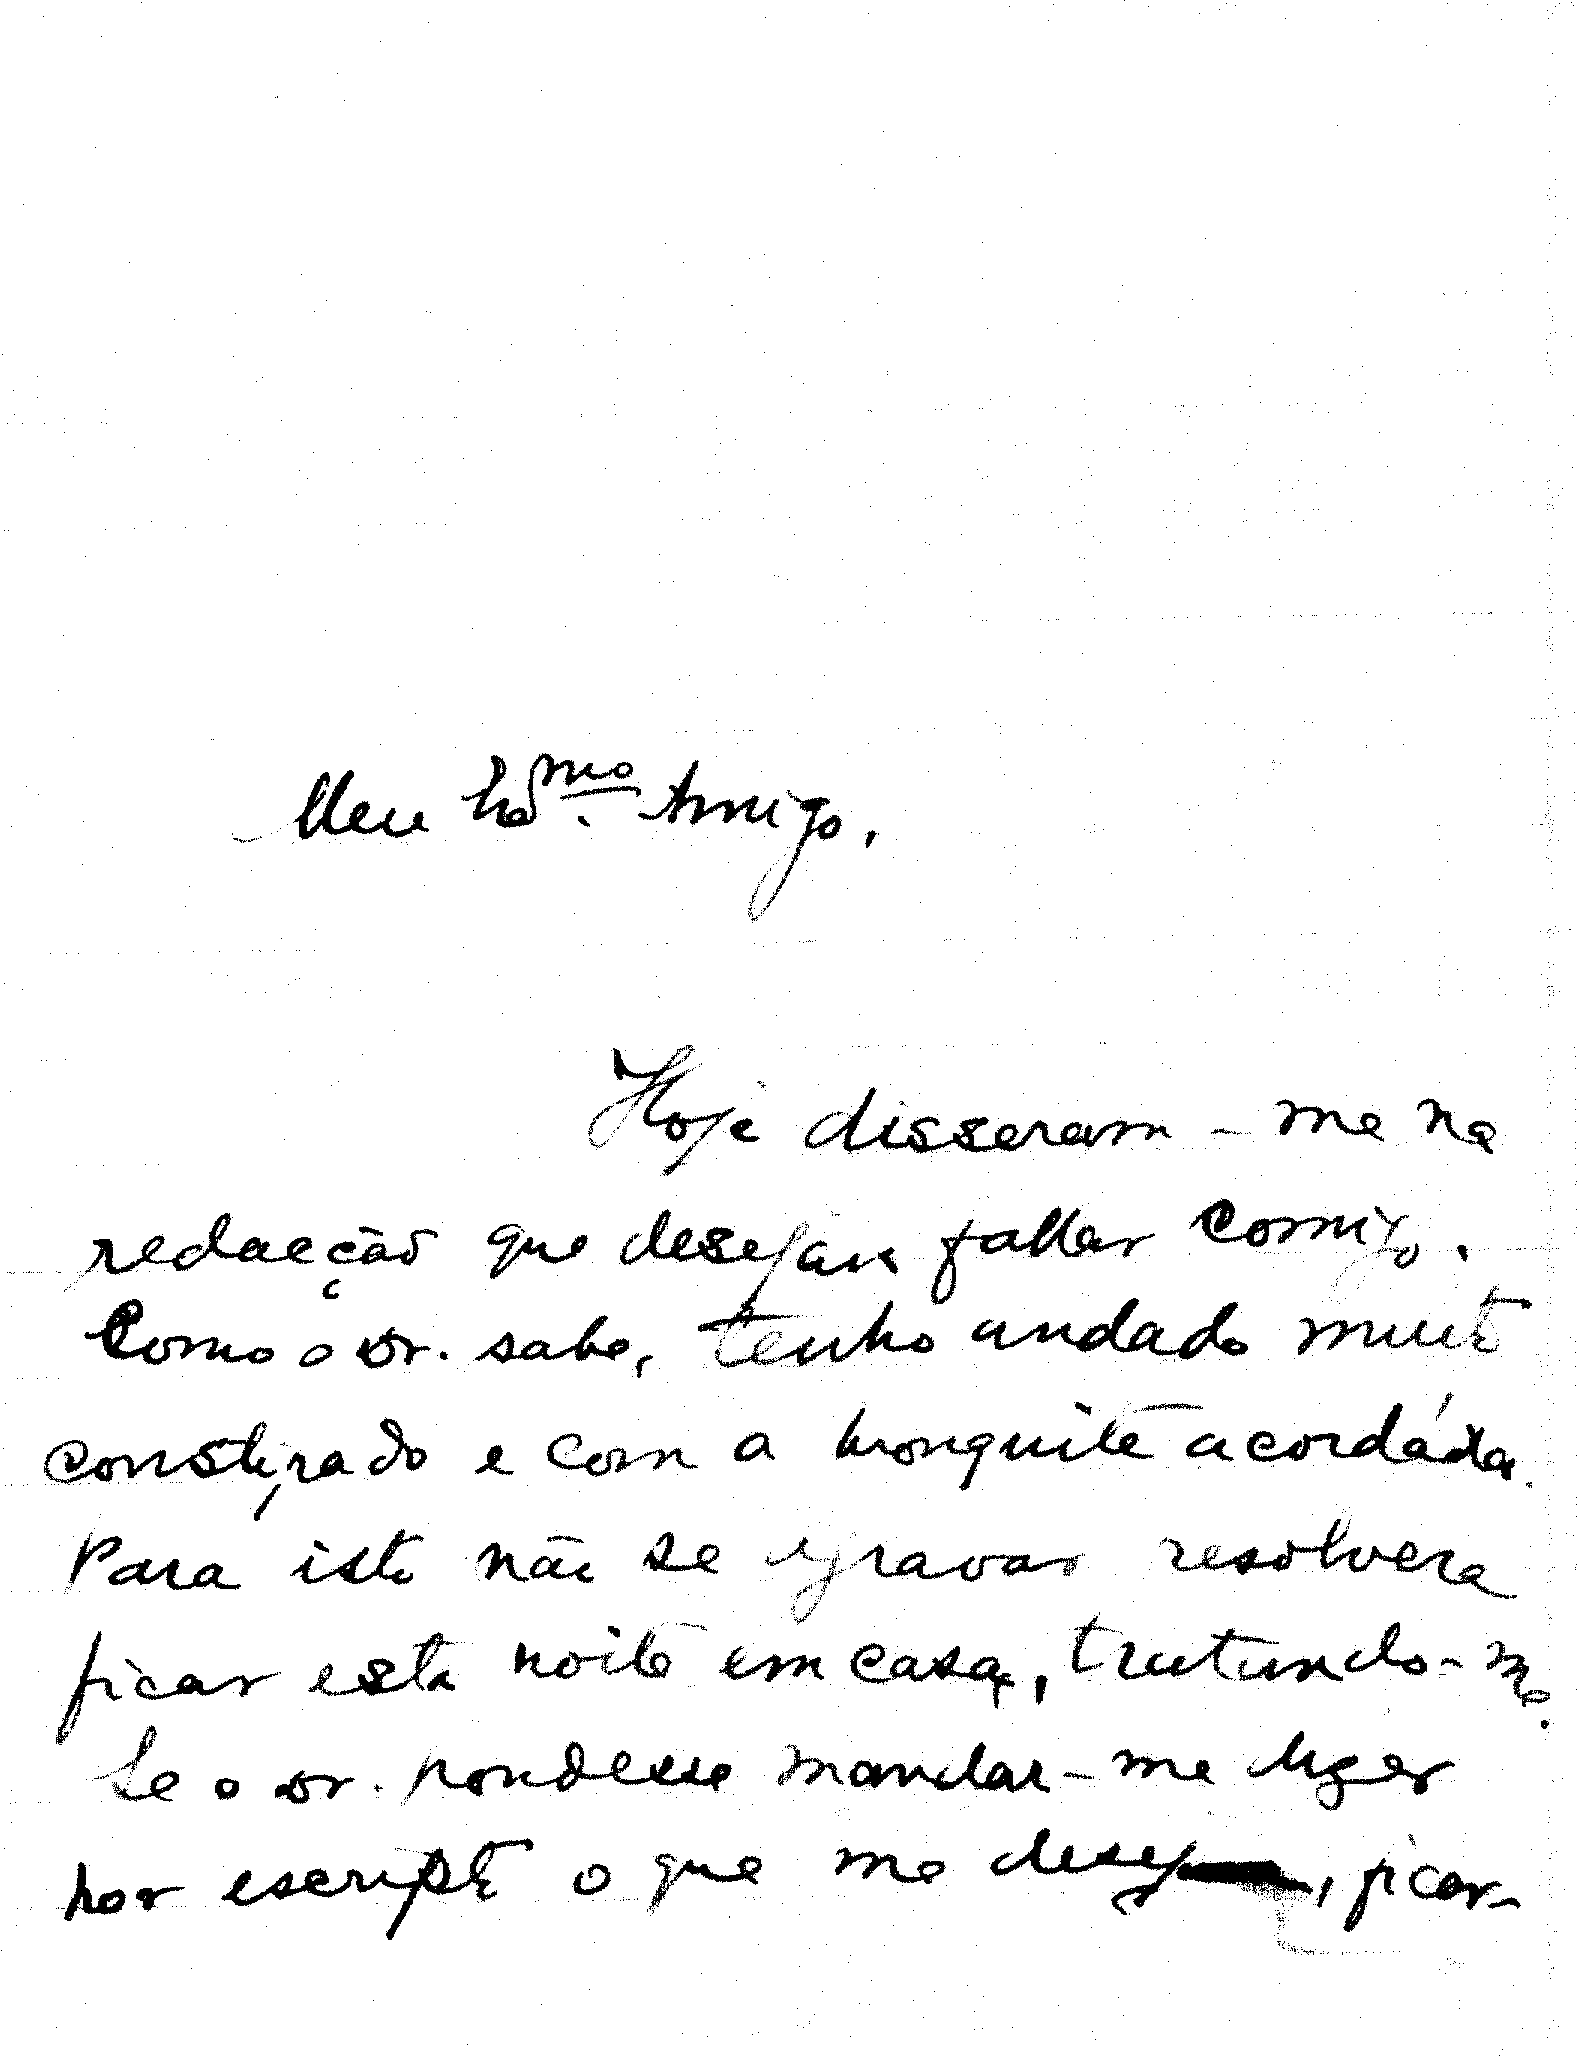 Meu Amigo,
Hoje disseram-me na
redacção que desejava fallar comigo.
Como o Dr. sabe, tenho andado muito
constipado e com a bronquite acordáda.
Para isto não se agravar resolvera
ficar esta noite em casa, tratando-me.
Se o Dr. poudesse mandar-me dizer
por escripto o que me deseja, ficar-